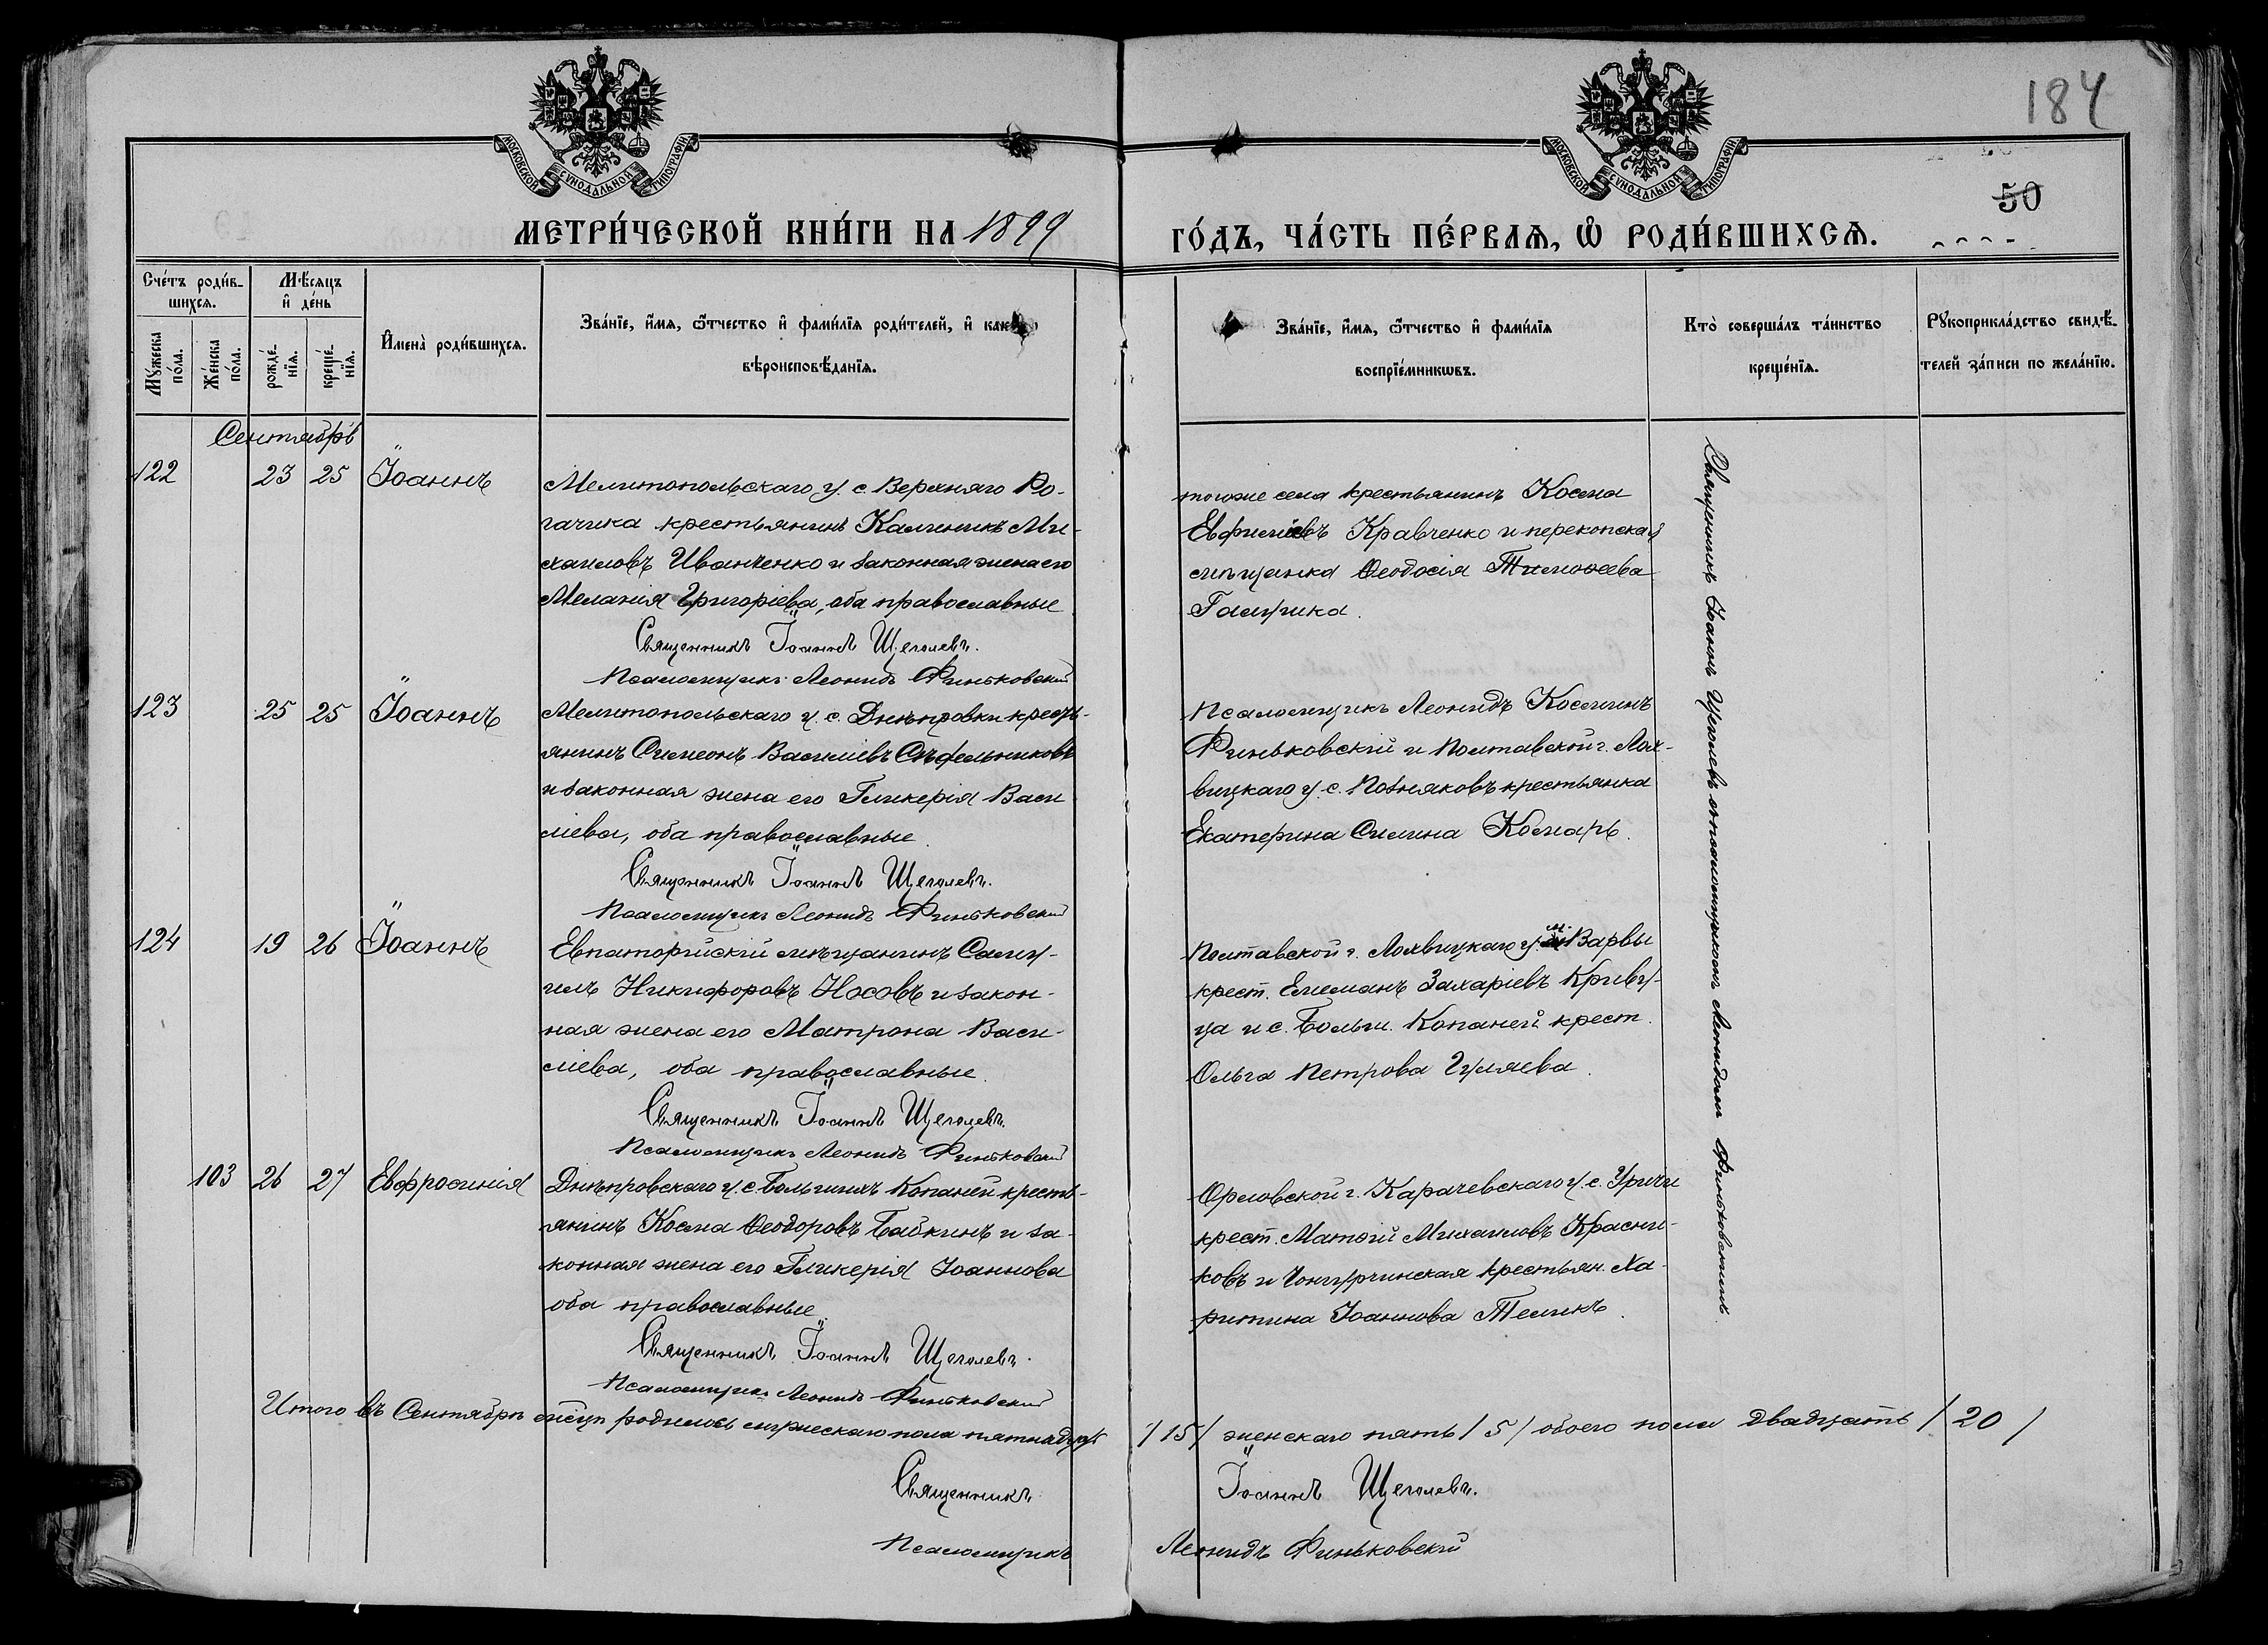 184
50
МОСКОВСКОЙ СѴНОДАЛЬНОЙ ТИПОГРАФІИ
МОСКОВСКОЙ СѴНОДАЛЬНОЙ ТИПОГРАФІИ
МЕТРИ́ЧЕСКОЙ КНИ́ГИ НА 1899
ГО́ДЪ, ЧА́СТЬ ПЕ́РВАѦ, Ѡ РОДИ́ВШИХСѦ.
Сче́тъ роди́в-
шихсѧ.
Мѣ́сѧцъ
и҆ де́нь
Мꙋ́жеска по́ла.
Же́нска по́ла.
рожде́-нїѧ.
креще́-нїѧ.
И҆мена̀ роди́вшихсѧ.
Зва́нїе, и҆́мѧ, ѻ҆́тчество и҆ фами́лїѧ роди́телей, и҆
вѣроисповѣ́данїѧ.
Зва́нїе, и҆́мѧ, ѻ҆́тчество и҆ фами́лїѧ
воспрїе́мникѡвъ.
Кто̀ соверша́лъ та́инство
креще́нїѧ.
Рꙋкоприкла́дство свидѣ́-
телей за́писи по жела́нїю.
Сентябрь
122 23 25 Іоаннъ
Мелитопольскаго у. с. Верхняго Ро-
гачика крестьянинъ Каленикъ Ми-
хаиловъ Иванченко и законная жена его
Меланія Григоріева, оба православные
Священникъ Іоаннъ Щеголевъ.
Псаломщикъ Леонидъ Финьковскій
тогоже села крестьянинъ Косма
Евфиміевъ Кравченко и перекопская
мѣщанка Ѳеодосія Тимоѳеева
123 25 25 Іоаннъ
Мелитопольскаго у. с. Днѣпровки кресть-
янинъ Симеонъ Василіевъ
и законная жена его Гликерія Васи
ліева, оба православные.
Священникъ Іоаннъ Щеголевъ.
Псаломщикъ Леонидъ Финьковскій
Псаломщикъ Леонидъ Косминъ
Финьковскій и Полтавской г. Лох-
вицкаго у. с. Позняковъ крестьянка
Екатерина Силина Комарь.
124 19 26 Іоаннъ
Евпаторійскій мѣщанинъ Саму-
илъ Никифоровъ Носовъ и закон-
ная жена его Матрона Васи-
ліева, оба православные.
Священникъ Іоаннъ Щеголевъ.
Псаломщикъ Леонидъ Финьковскій
Полтавской г. Лохвицкаго у. м. Варвы
крест. Захаріевъ Криву-
ца и с. Больш. Копаней крест.
Ольга Петрова Гуляева.
103 26 27 Евфросинія
Днѣпровскаго у. с. Большихъ Копаней кресть-
янинъ Косма Ѳеодоровъ Бабкинъ и за-
конная жена его Гликерія Іоаннова
оба православные.
Священникъ Іоаннъ Щеголевъ.
Псаломщикъ Леонидъ Финьковскій
Орловской г. Карачевскаго у. с.
крест. Матѳій Михаиловъ Красни-
ковъ и крестьян. Ха-
ритина Іоаннова Теликъ.
Священникъ Іоаннъ Щеголевъ съ псаломщикомъ Леонидомъ Финьковскимъ.
Итого въ Сентябрѣ мѣсяцѣ родилось мужескаго пола пятнадцать /15/ женскаго пять /5/ обоего пола двадцать /20/
Священникъ Іоаннъ Щеголевъ.
Псаломщикъ Леонидъ Финьковскій